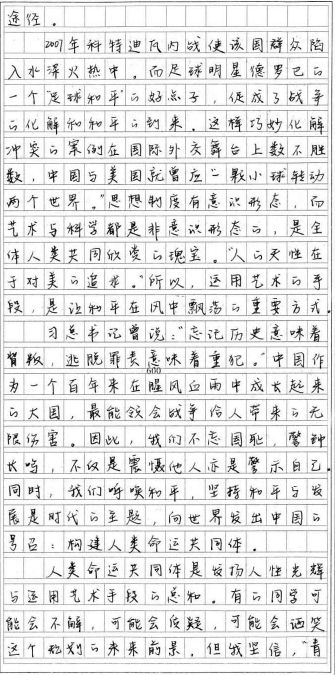 途径。
2007年科特迪瓦内战使该国群众陷
入水深火热中。而足球明星德罗巴的
一个"足球和平"的好点子，促成了战争
的化解和和平的到来。这样巧妙化解
冲突的案例在国际外交舞台上数不胜
数，中国与美国就曾应"一颗小球转动
两个世界。"思想制度有意识形态，而
艺术与科学都是非意识形态的，是全
体人类共同欣赏的瑰宝。"人的天性在
于对美的追求。"所以，运用艺术的手
段，是让和平在风中飘荡的重要方式。
习总书记曾说："忘记历史意味着
背叛，逃脱罪责意味着重犯。"中国作
600
为一个百年来在腥风血雨中成长起来
的大国，最能领会战争给人带来的无
限伤害。因此，我们不忘国耻，警钟
长鸣，不仅是震慑他人亦是警示自己。
同时，我们呼唤和平，坚持和平与发
展是时代的主题，向世界发出中国的
号召：构建人类命运共同体。
人类命运共同体是发扬人性光辉
与运用艺术手段的总和。有的同学可
能会不解，可能会质疑，可能会讪笑
这个规划的未来前景。但我坚信，"青